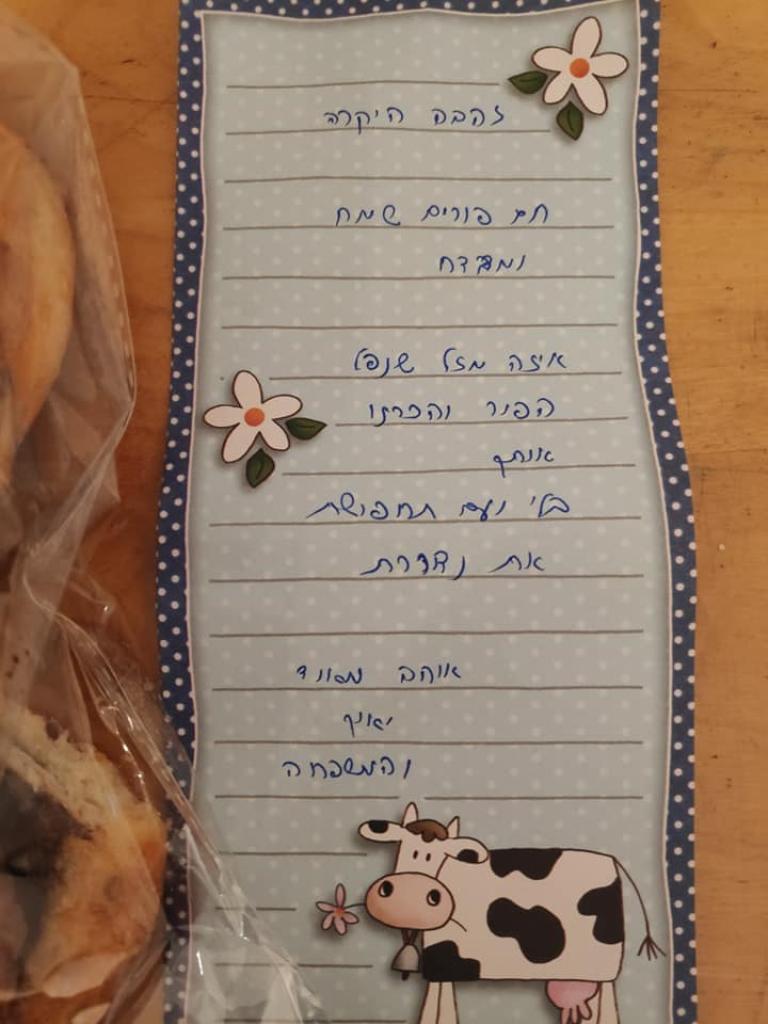 זהבה היקרה
חג פורים שמח
ומבדח
איזה מזל שנפל
הפור והכרנו
אותך
בלי ועם תחפושת
את נהדרת
אוהב מאוד
יאיר
והמשפחה